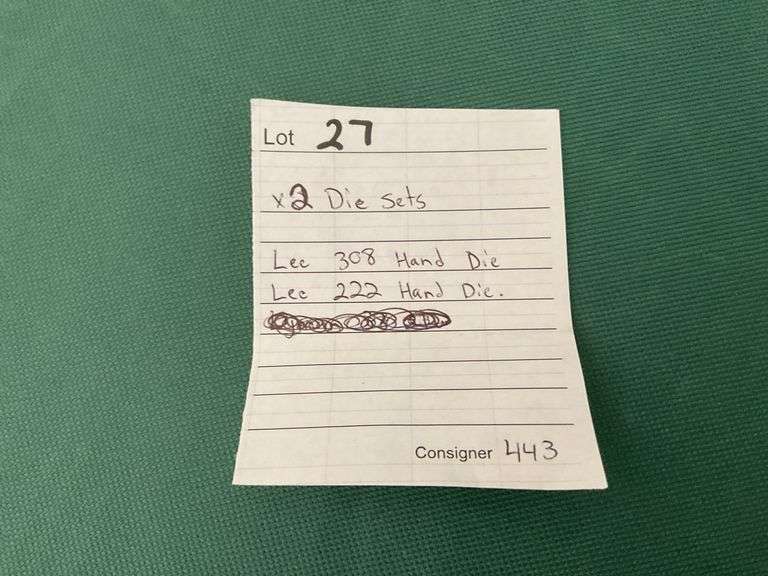 Lot 27
x2 Die sets
Lee 308 Hand Die
Lee 222 Hand Die.
Consigner 443